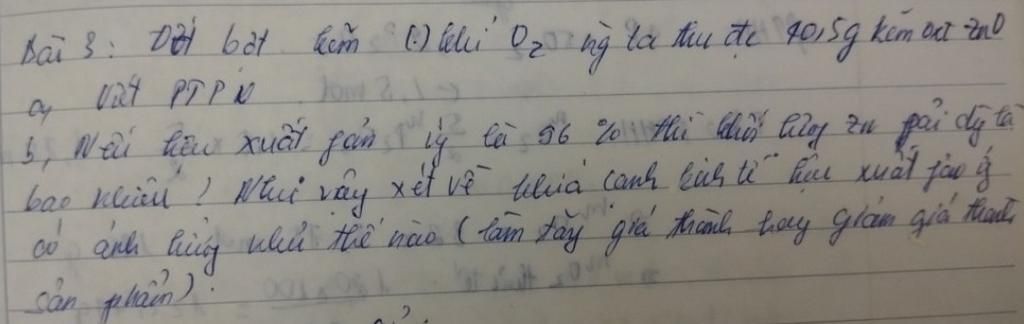 Bài 3: Đốt bột kẽm (.) khí O2 ng ta thu đc 40,5g kẽm oxit ZnO
a, Viết PTPƯ
b, Nếu hiệu xuất fản ứg là 96 % thì khối lượng Zn fải dùg là
bao nhiêu? Như vậy xét về khía cạnh kinh tế hiệu xuất fản ứ
có ảnh hưởng như thế nào (làm tăg giá thành hay giảm giá thành
sản phẩm).